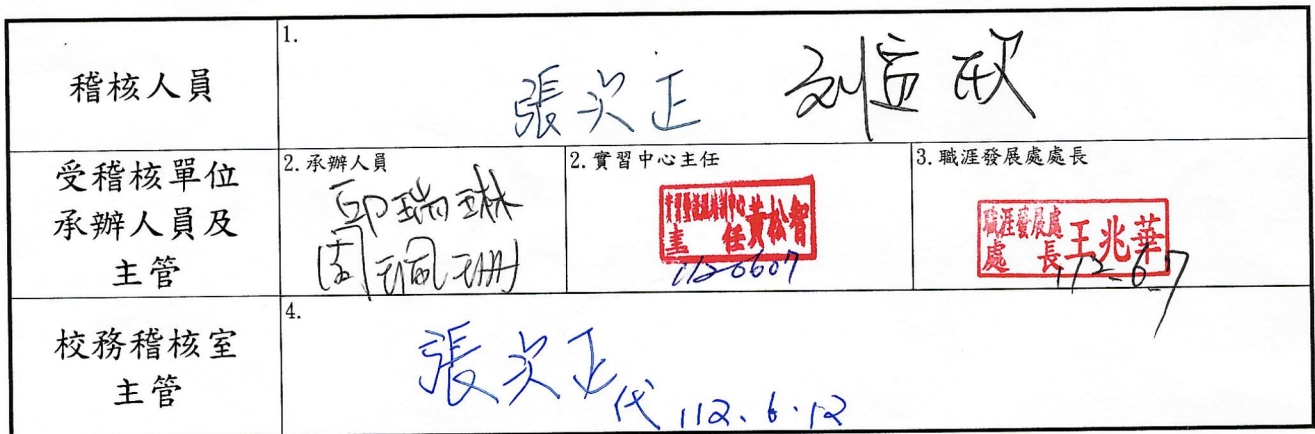 稽核人員
1.
張次正 劉益欣
受稽核單位
承辦人員及
主管
2.承辦人員
邱瑞琳
周珮珊
2.實習中心主任
主任黃松智
112-0607
3.職涯發展處處長
職涯發展處
處長王兆華
112-6-7
校務稽核室
主管
4.
張次正代 112.6.12